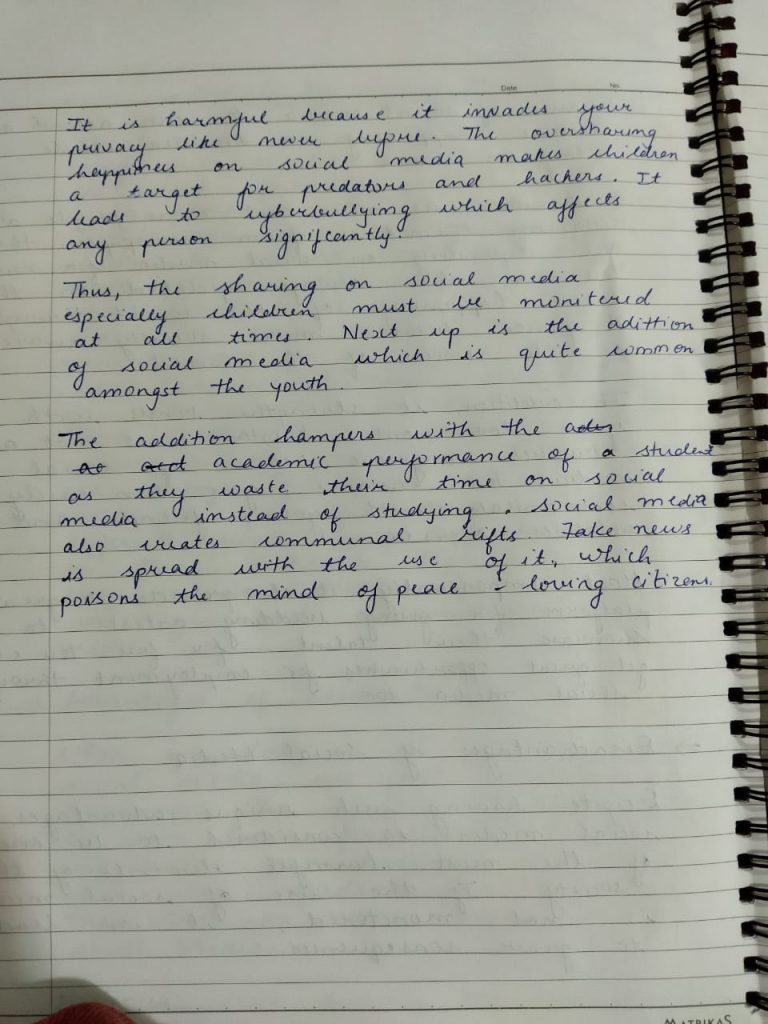 Date No
It is harmful because it invades your
privacy like never before. The oversharing
happines on social media makes children
a target for predators and hackers. It
leads to cyberbullying which affects
any person signifcantly.
Thus, the sharing on social media
especially children must be monitered
at all times. Next up is the adittion
of social media which is quite common
amongst the youth.
The addition hampers with the
academic performance of a student
as they waste their time on social
media instead of studying. Social media
also creates communal rifts. Fake news
is spread with the use of it, which
poisons the mind of peace - loving citizens.
MATRIKAS